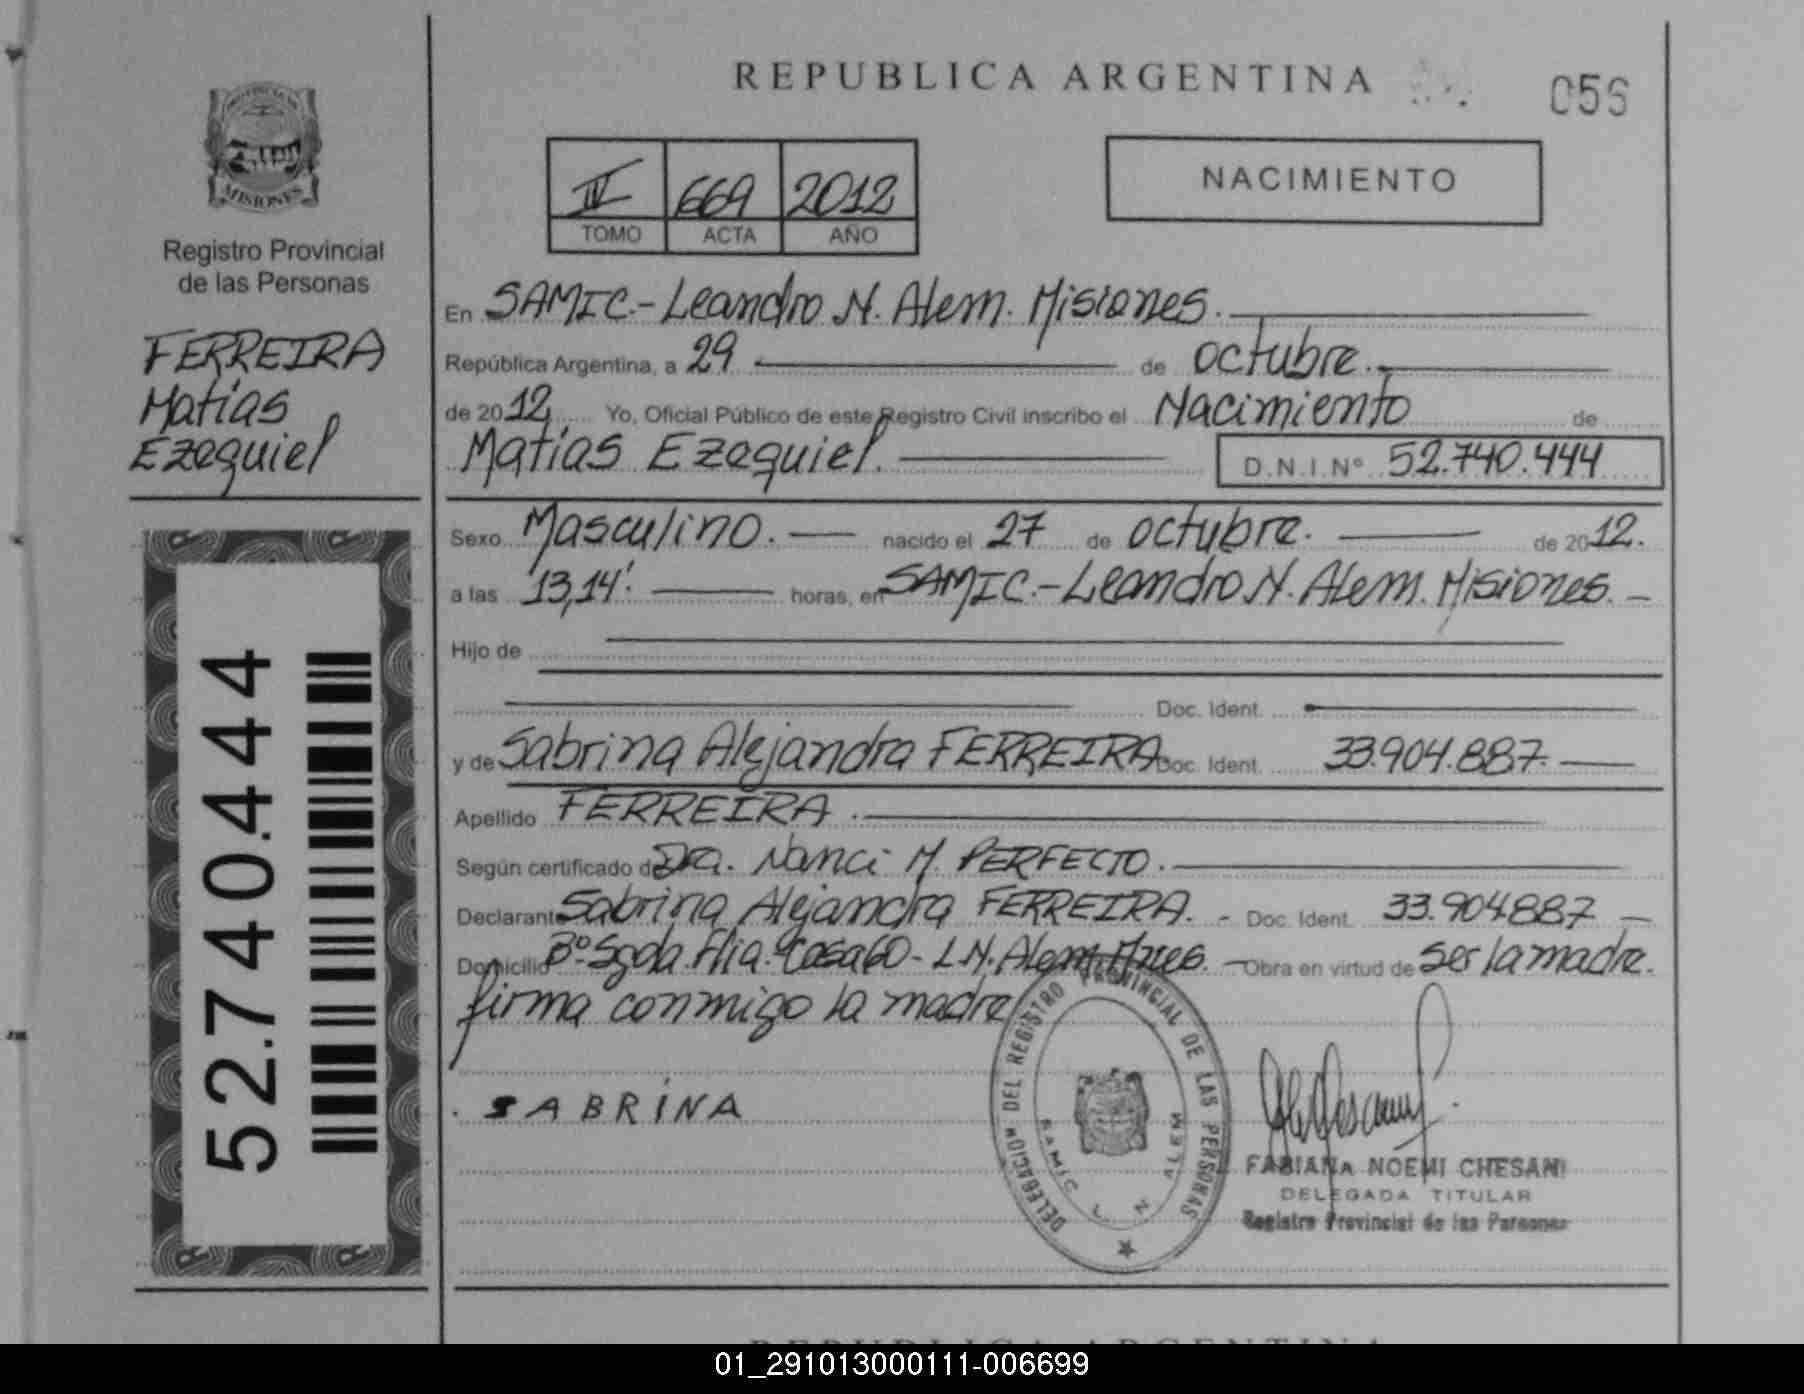 REPUBLICA ARGENTINA
056
PROVINCIA DE
MISIONES
Registro Provincial
de las Personas
FERREIRA
Matías
Ezequiel
52.740.444
IV 669 2012
TOMO ACTA AÑO
NACIMIENTO
En SAMIC.- Leandro N. Alem. Misiones.
República Argentina, a 29 de octubre.
de 2012 Yo, Oficial Público de este Registro Civil inscribo el Nacimiento de
Matías Ezequiel. D.N.I.Nº 52.740.444
Sexo Masculino. nacido el 27 de octubre. de 2012.
a las 13,14'. horas, en SAMIC.- Leandro N. Alem. Misiones.
Hijo de
Doc. Ident.
y de Sabrina Alejandra FERREIRA Doc. Ident. 33.904.887.
Apellido FERREIRA.
Según certificado de Dra. Nanci M. PERFECTO.
Declarante Sabrina Alejandra FERREIRA. - Doc. Ident. 33.904887
Domicilio Bº Sgda. Flia. Casa 60 - L.N. Alem. Mnes. - Obra en virtud de ser la madre.
firma conmigo la madre
SABRINA
DELEGACION DEL REGISTRO PROVINCIAL DE LAS PERSONAS
SAMIC L. N. ALEM
FABIANA NOEMI CHESANI
DELEGADA TITULAR
Registro Provincial de las Personas
REPUBLICA ARGENTINA
01_291013000111-006699